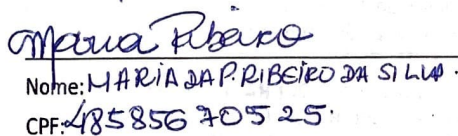 Maria Ribeiro
Nome: MARIA DA P. RIBEIRO DA SILVA.
CPF: 485856705 25.